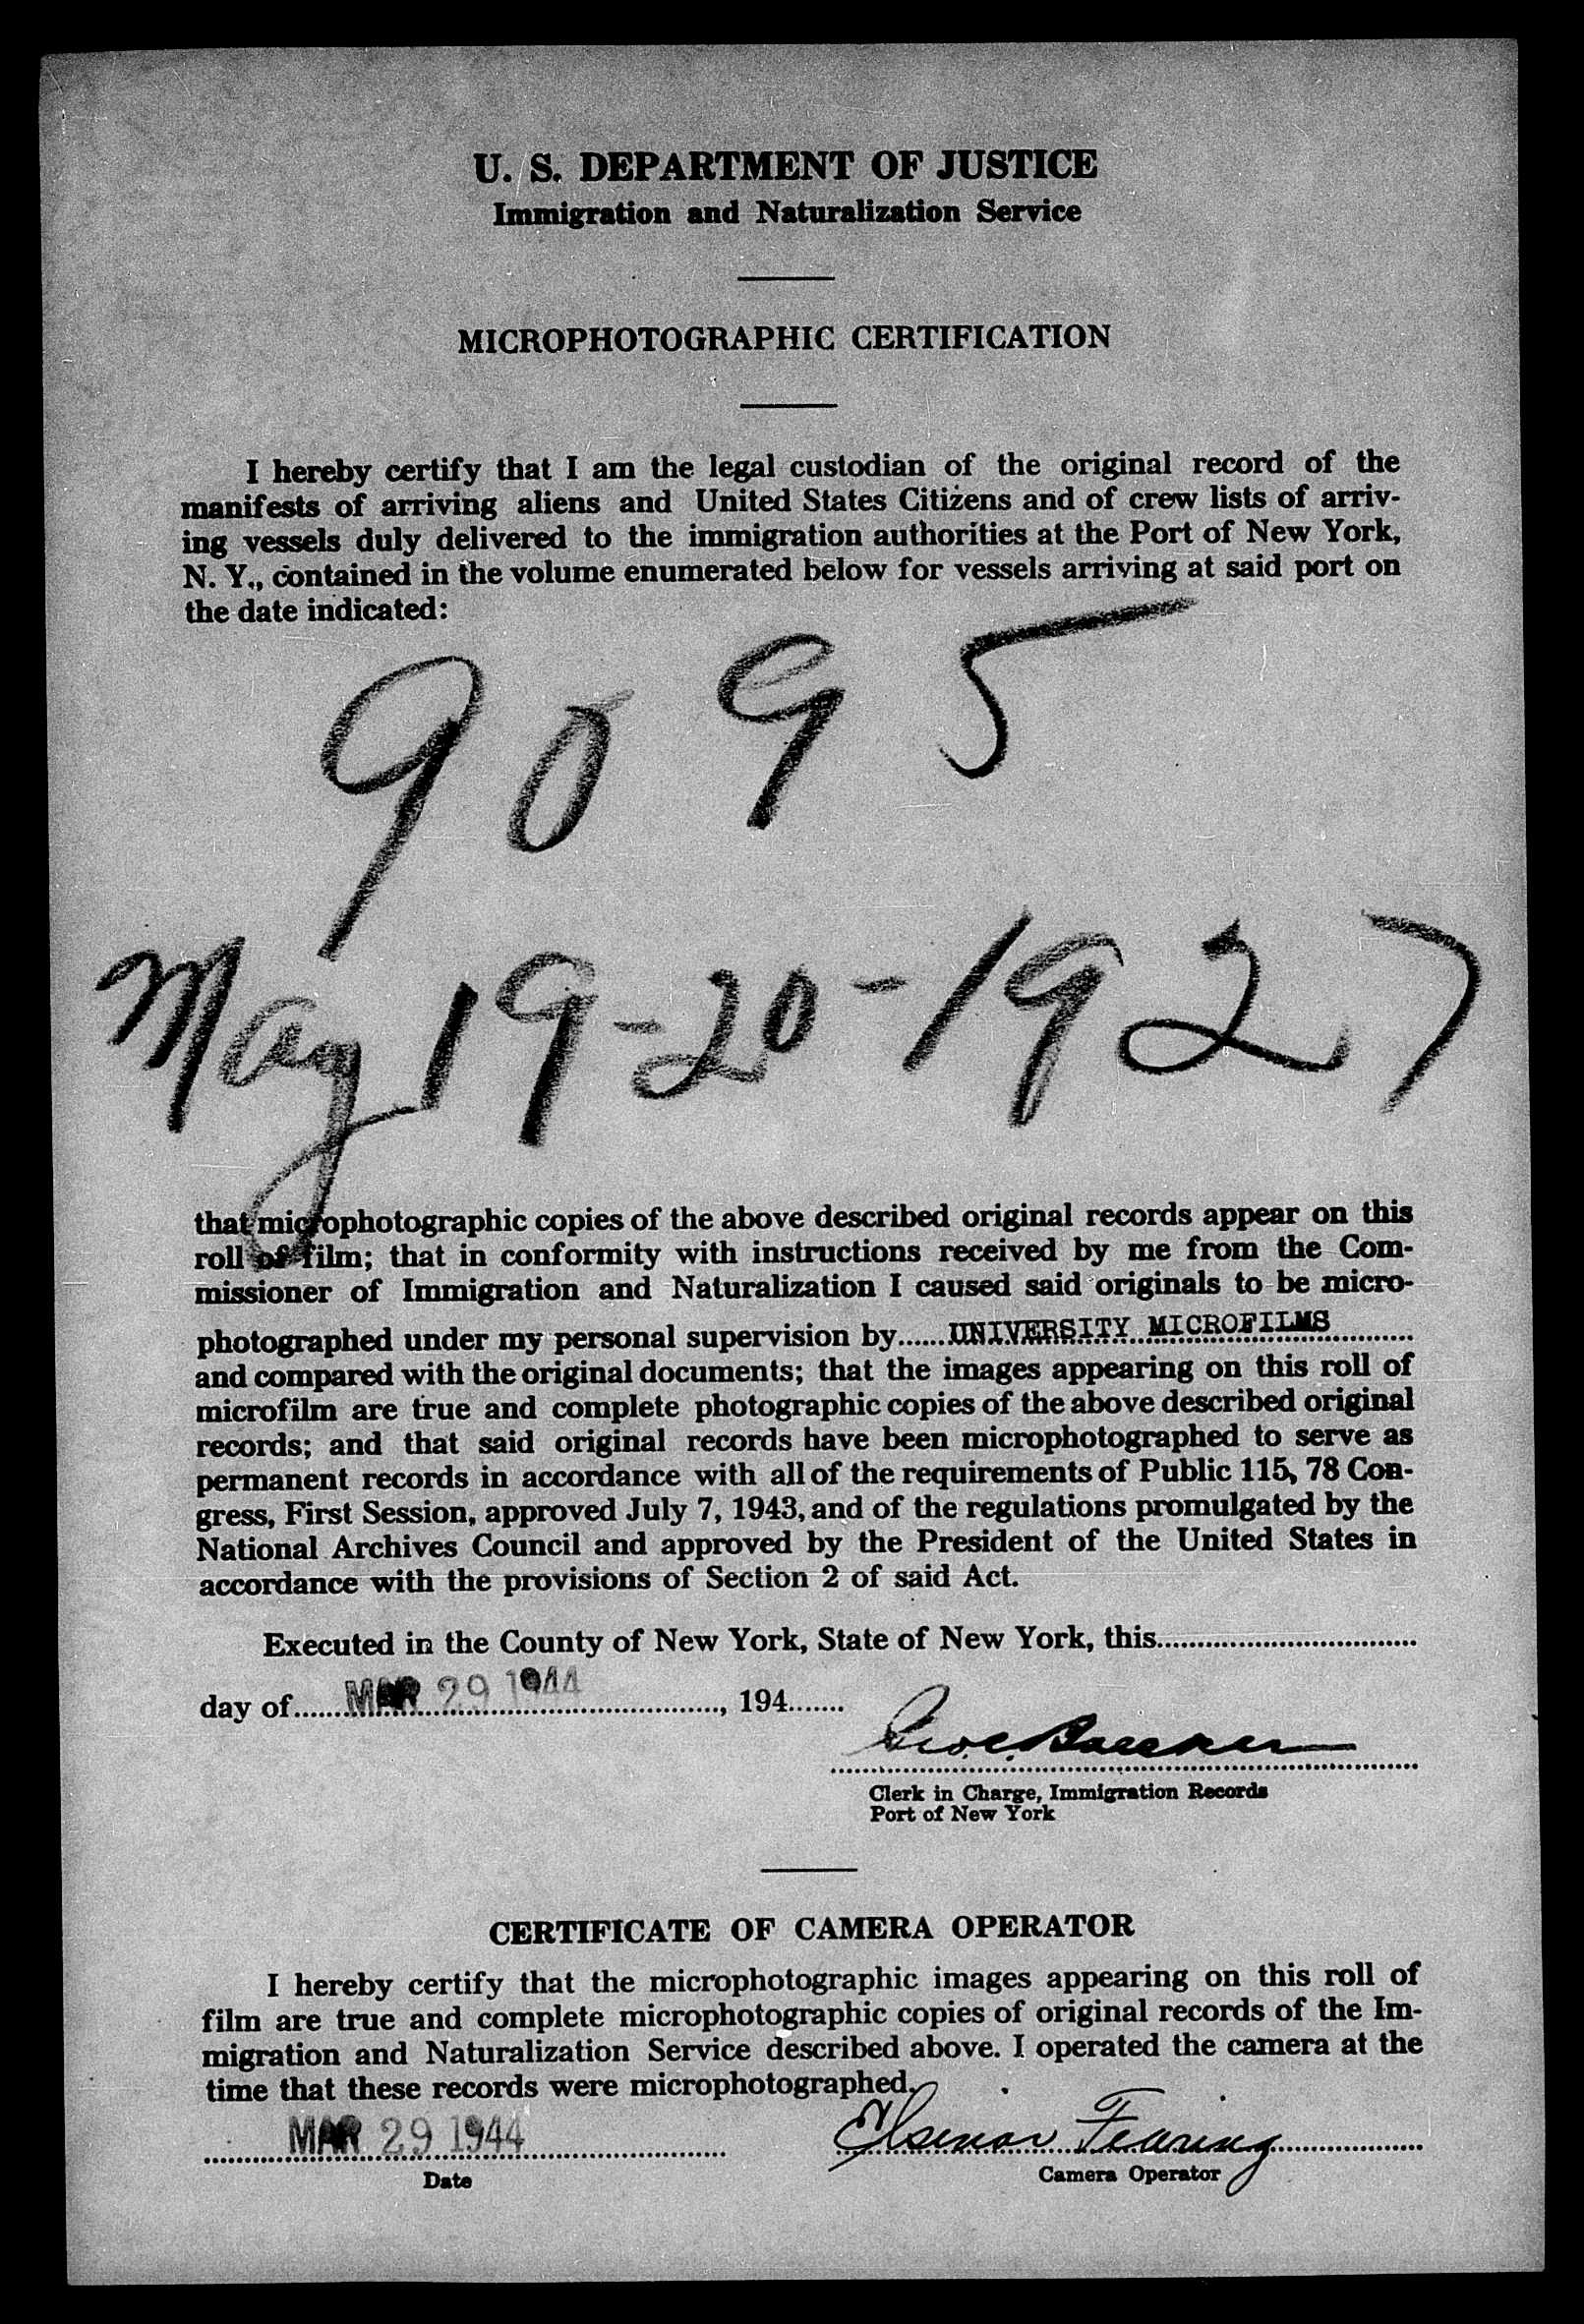 U. S. DEPARTMENT OF JUSTICE
Immigration and Naturalization Service
MICROPHOTOGRAPHIC CERTIFICATION
I hereby certify that I am the legal custodian of the original record of the
manifests of arriving aliens and United States Citizens and of crew lists of arriv-
ing vessels duly delivered to the immigration authorities at the Port of New York,
N. Y., contained in the volume enumerated below for vessels arriving at said port on
the date indicated:
9095
May 19-20-1927
that microphotographic copies of the above described original records appear on this
roll of film; that in conformity with instructions received by me from the Com-
missioner of Immigration and Naturalization I caused said originals to be micro-
photographed under my personal supervision by......UNIVERSITY MICROFILMS..........
and compared with the original documents; that the images appearing on this roll of
microfilm are true and complete photographic copies of the above described original
records; and that said original records have been microphotographed to serve as
permanent records in accordance with all of the requirements of Public 115, 78 Con-
gress, First Session, approved July 7, 1943, and of the regulations promulgated by the
National Archives Council and approved by the President of the United States in
accordance with the provisions of Section 2 of said Act.
Executed in the County of New York, State of New York, this................................
day of......MAR 29 1944................, 194.......
Clerk in Charge, Immigration Records
Port of New York
CERTIFICATE OF CAMERA OPERATOR
I hereby certify that the microphotographic images appearing on this roll of
film are true and complete microphotographic copies of original records of the Im-
migration and Naturalization Service described above. I operated the camera at the
time that these records were microphotographed.
MAR 29 1944 Elsinor Fearing
Date Camera Operator